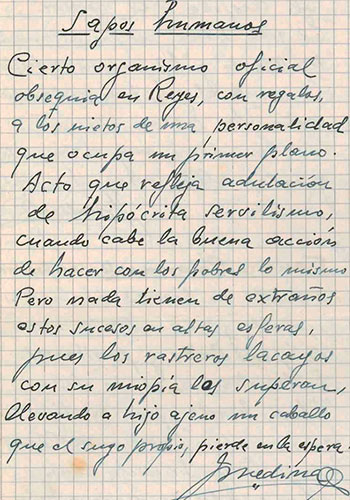 Sapos humanos
Cierto organismo oficial
obsequia en Reyes, con regalos,
a los nietos de una personalidad
que ocupa un primer plano.
Acto que refleja adulación
de hipócrita servilismo,
cuando cabe la buena acción
de hacer con los pobres lo mismo
Pero nada tienen de extraños
estos sucesos en altas esferas,
pues los rastreros lacayos
con su miopía les superan,
llevando a hijo ajeno un caballo
que el suyo propio, pierde en la espera.